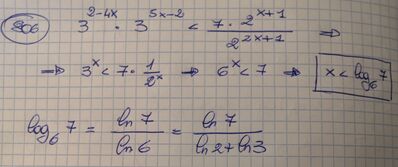 806 3^{2-4x} · 3^{5x-2} < \frac{7 · 2^{x+1}}{2^{2x+1}} ⇒
⇒ 3^x < 7 · \frac{1}{2^x} ⇒ 6^x < 7 ⇒ x < log_6 7
log_6 7 = \frac{ln 7}{ln 6} = \frac{ln 7}{ln 2 + ln 3}